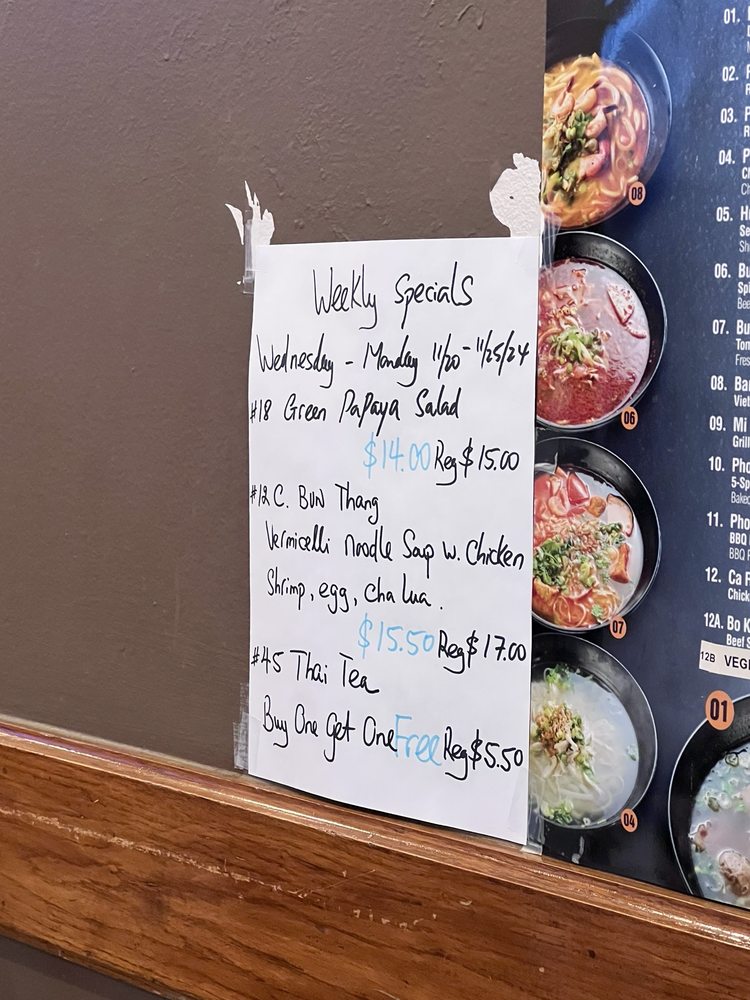 Weekly Specials
Wednesday - Monday 11/20 - 11/25/24
#18 Green Papaya Salad
$14.00 Reg $15.00
#12C. Bun Thang
Vermicelli Noodle Soup w. Chicken
Shrimp, egg, cha lua.
$15.50 Reg $17.00
#45 Thai Tea
Buy One Get One Free Reg $5.50
08
06
07
04
01.
02.
03.
04.
05.
06.
07.
08.
09. Mi
10. Pho
5-Sp
Baked
11. Pho
BBQ
BBQ
12. Ca
Chick
12A. Bo K
Beef S
12B VEG
01